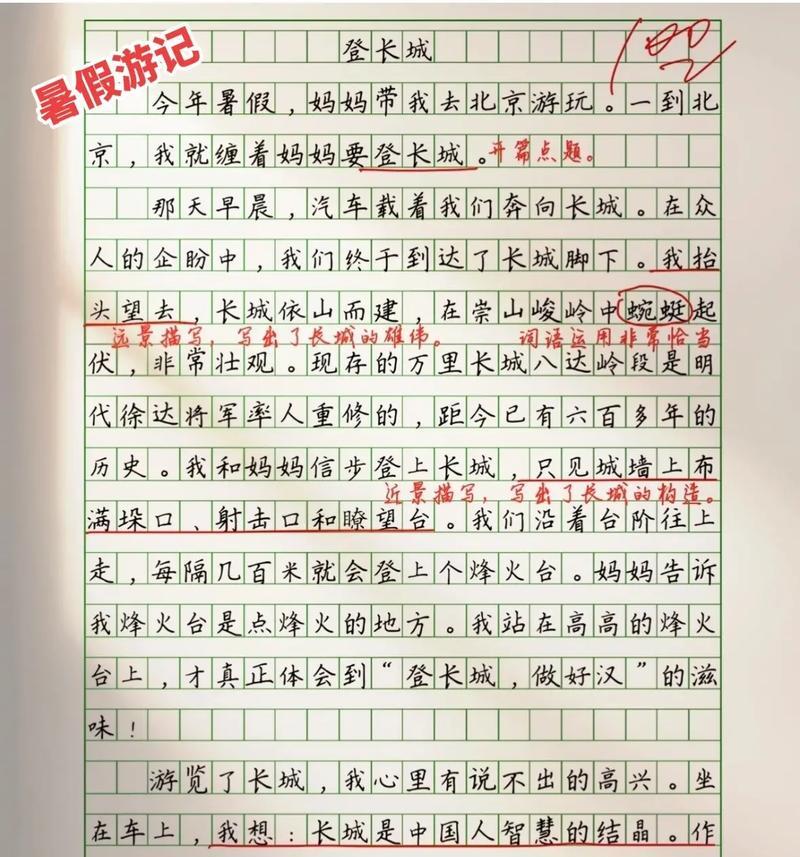 暑假游记
登长城
100
今年暑假，妈妈带我去北京游玩。一到北
京，我就缠着妈妈要登长城。开篇点题。
那天早晨，汽车载着我们奔向长城。在众
人的企盼中，我们终于到达了长城脚下。我抬
头望去，长城依山而建，在崇山峻岭中蜿蜒起
远景描写，写出了长城的雄伟。 词语运用非常恰当
伏，非常壮观。现存的万里长城八达岭段是明
代徐达将军率人重修的，距今已有六百多年的
历史。我和妈妈信步登上长城，只见城墙上布
近景描写，写出了长城的构造。
满垛口、射击口和瞭望台。我们沿着台阶往上
走，每隔几百米就会登上个烽火台。妈妈告诉
我烽火台是点烽火的地方。我站在高高的烽火
台上，才真正体会到“登长城，做好汉”的滋
味！
游览了长城，我心里有说不出的高兴。坐
在车上，我想：长城是中国人智慧的结晶。作